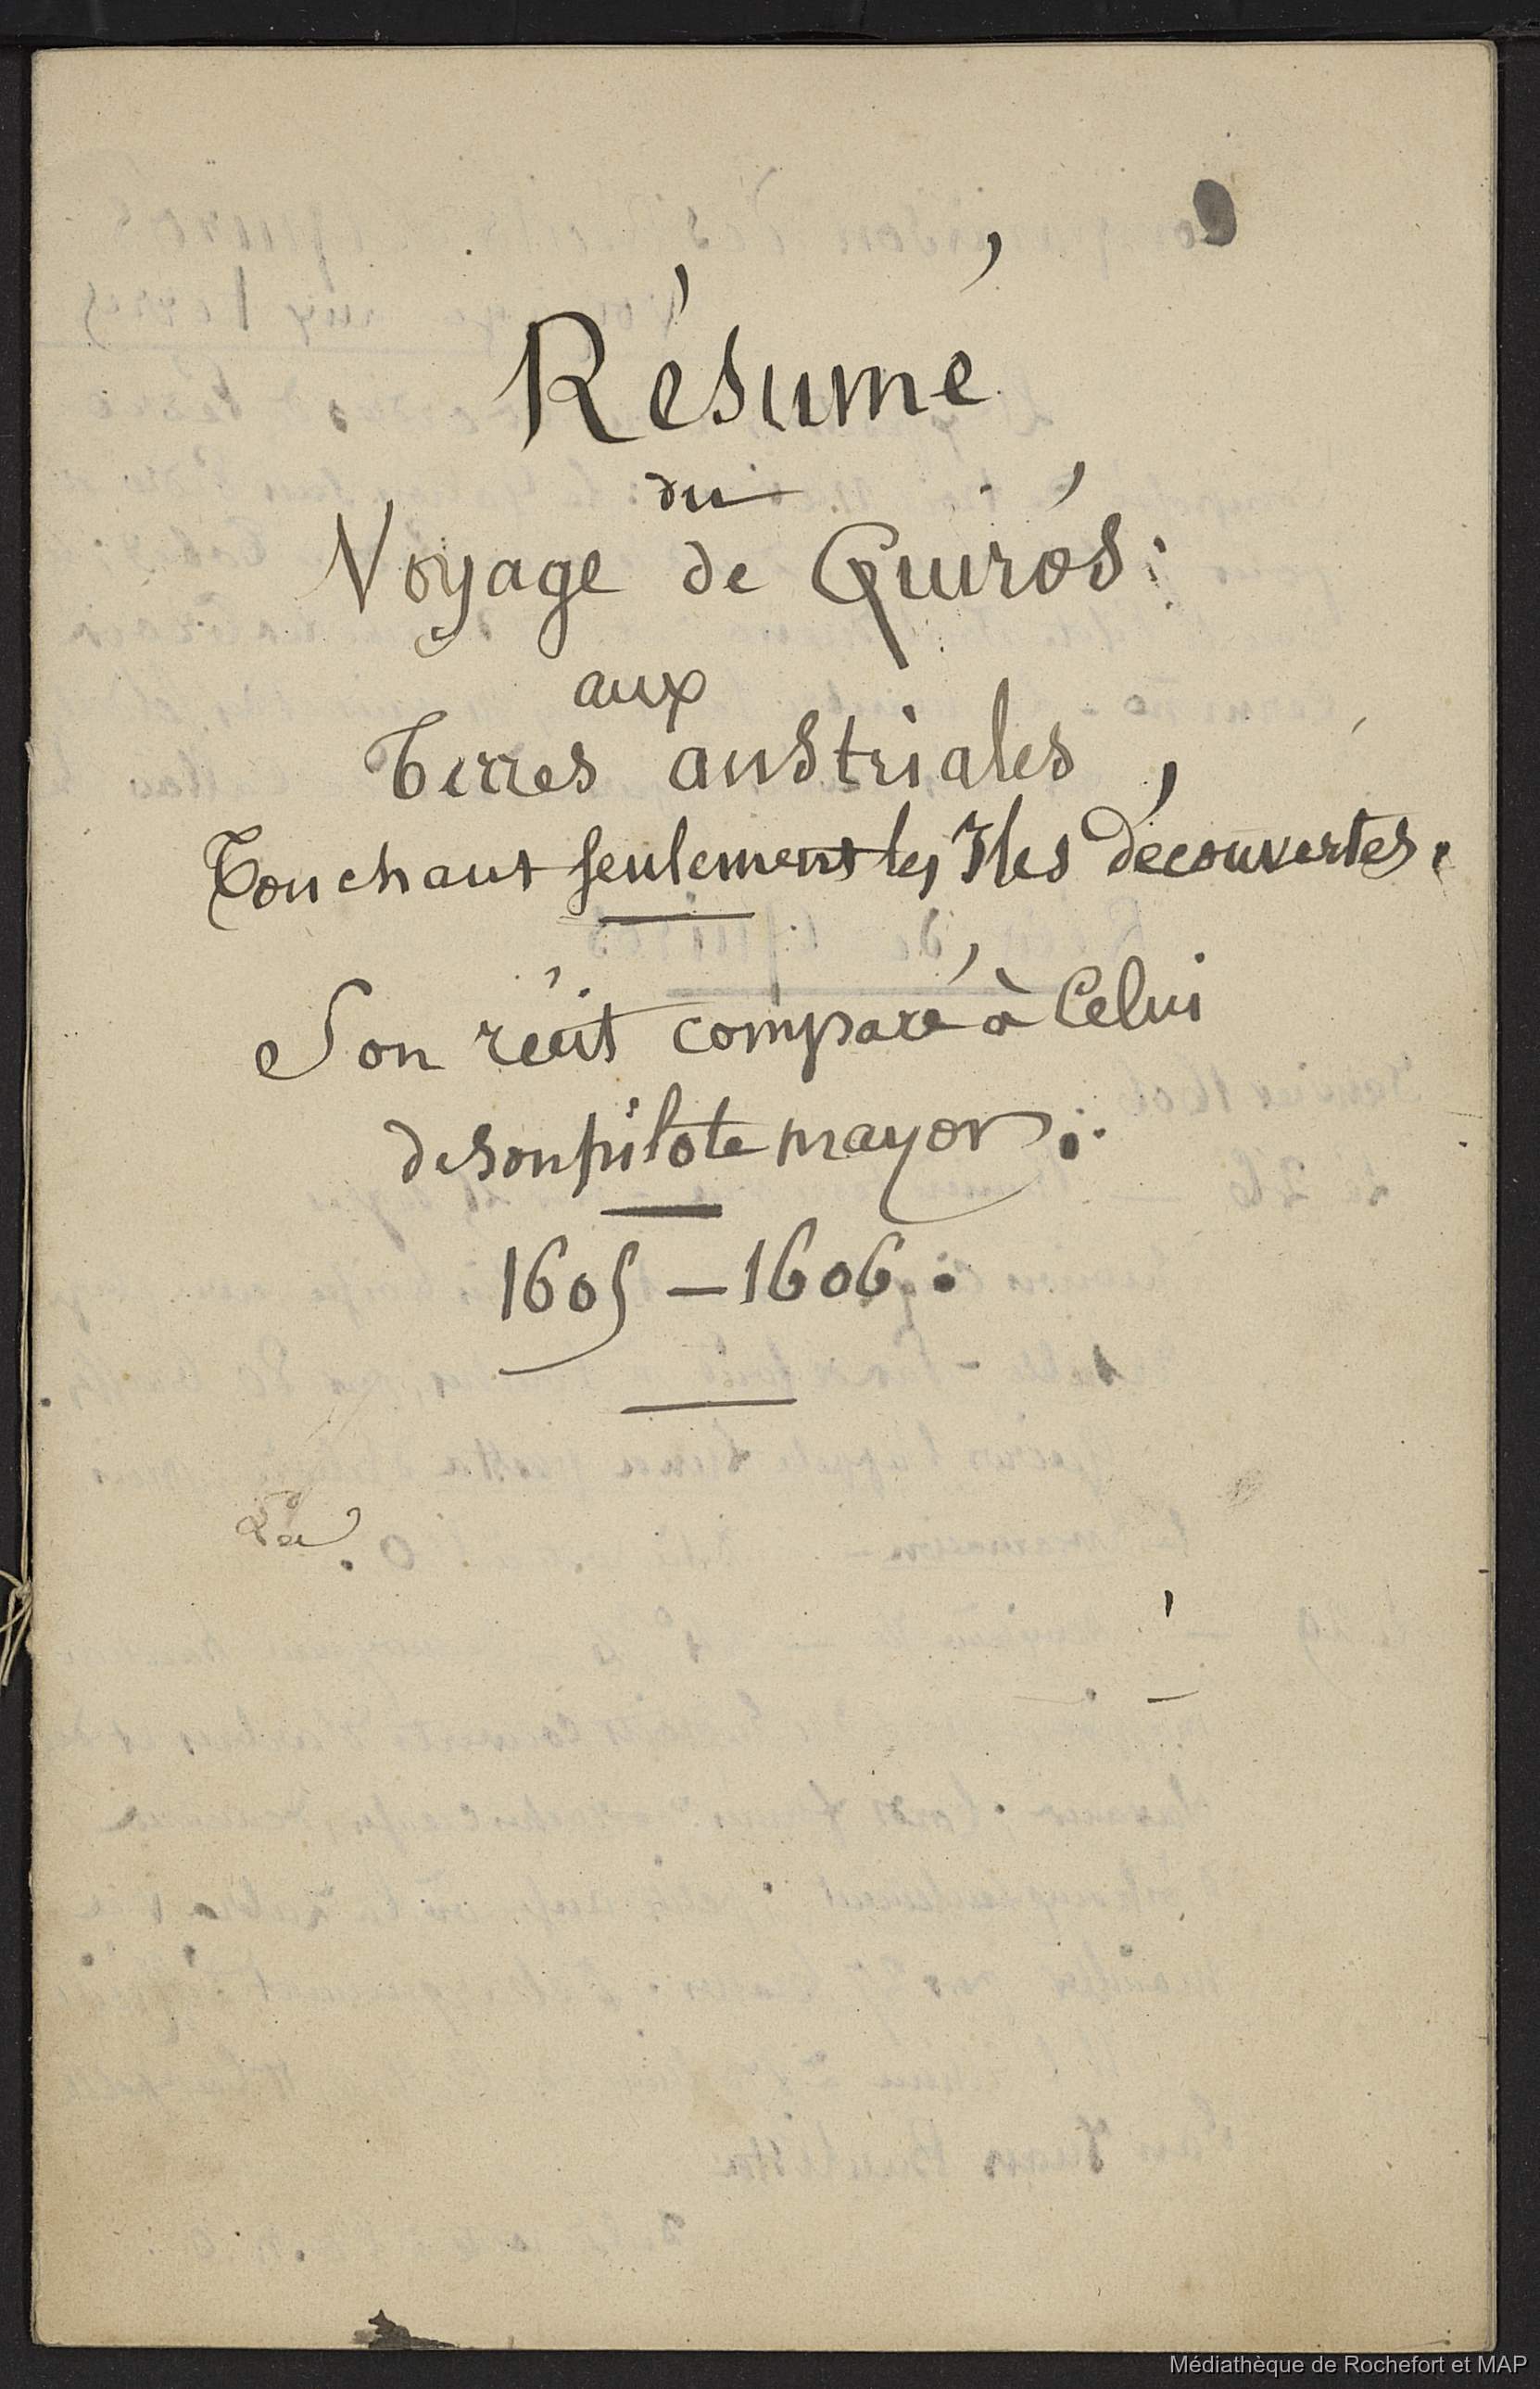 Résumé
du
Voyage de Quirós:
aux
Terres austriales,
Touchant seulement les Iles découvertes.
Son récit comparé à Celui
de son pilote mayor:
1605 – 1606.
La
Médiathèque de Rochefort et MAP